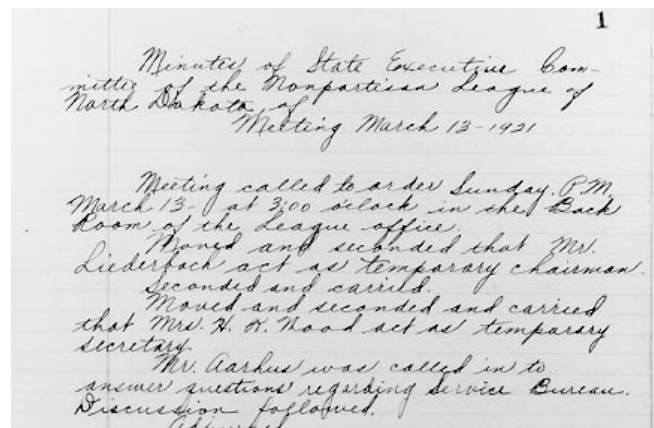 1
Minutes of State Executive Com-
mittee of the Nonpartisan League of
North Dakota, of
Meeting March 13-1921
Meeting called to order Sunday. P.M.
March 13- at 3:00 o'clock in the Back
Room of the League office.
Moved and seconded that Mr.
Liederbach act as temporary chairman.
Seconded and carried.
Moved and seconded and carried
that Mrs. H. R. Wood act as temporary
secretary.
Mr. Aarhus was called in to
answer questions regarding Service Bureau.
Discussion followed.